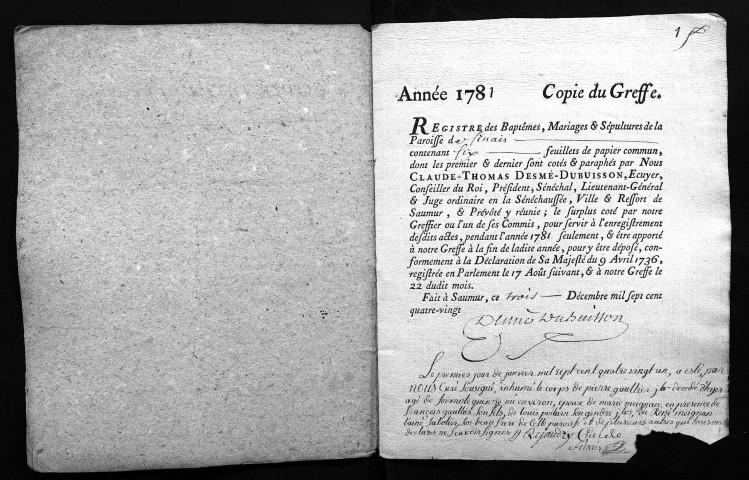 1
Année 1781 Copie du Greffe.
REGISTRE des Baptêmes, Mariages & Sépultures de la
Paroisse de sinais
contenant six feuillets de papier commun,
dont les premier & dernier sont cotés & paraphés par Nous
CLAUDE-THOMAS DESMÉ-DUBUISSON, Ecuyer,
Conseiller du Roi, Président, Sénéchal, Lieutenant-Général
& Juge ordinaire en la Sénéchaussée, Ville & Ressort de
Saumur, & Prévôté y réunie; le surplus coté par notre
Greffier ou l'un de ses Commis, pour servir à l'enregistrement
desdits actes, pendant l'année 1781 seulement, & être apporté
à notre Greffe à la fin de ladite année, pour y être déposé, con-
formement à la Déclaration de Sa Majesté du 9 Avril 1736,
registrée en Parlement le 17 Août suivant, & à notre Greffe le
22 dudit mois.
Fait à Saumur, ce trois Décembre mil sept cent
quatre-vingt
Desmé Dubuisson
Le premier jour de janvier mil sept cent quatre vingt un, a esté, par
nous Curé sousigné, inhumé le corps de pierre gaultier, decedé d'hyer
agé de soixante quinze ou environ, epoux de marie meignan, en presence de
françois gaultier son fils, de louis poitain son gendre, de René meignan
l'ainé sabotier, son beau frere de cette paroisse et de plusieurs autres qui tous ont
declarez ne scavoir signer Curé de
sinais